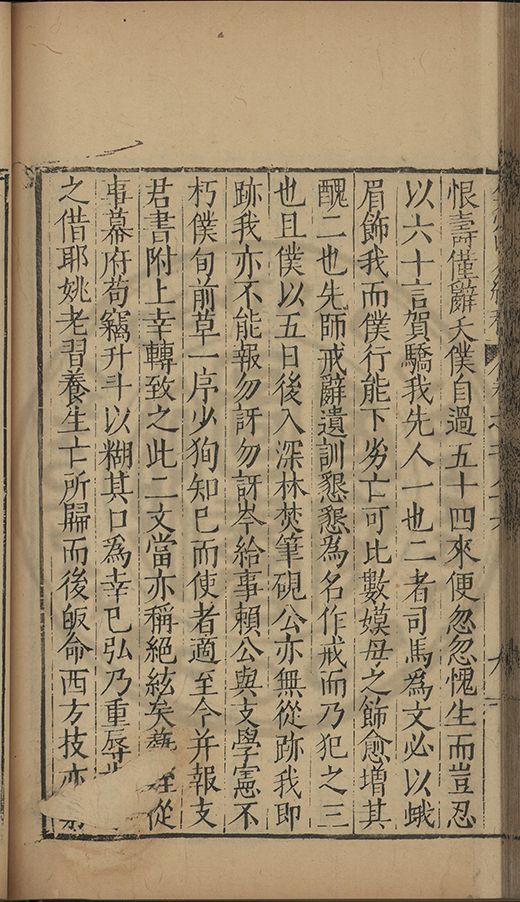 恨壽僅辭夭僕自過五十四來便忽忽愧生而豈忍
以六十言賀驕我先人一也二者司馬為文必以蛾
眉飾我而僕行能下劣亡可比數嫫母之飾愈增其
醜二也先師戒辭遺訓懇懇為名作戒而乃犯之三
也且僕以五日後入深林焚筆硯公亦無從跡我即
跡我亦不能報勿訝勿訝岑給事賴公與支學憲不
朽僕旬前草一序少狥知已而使者適至今并報支
君書附上幸轉致之此二文當亦稱絕絃矣 從
事幕府苟竊升斗以糊其口為幸已弘乃重辱
之借耶姚老習養生亡所歸而後皈命西方技亦